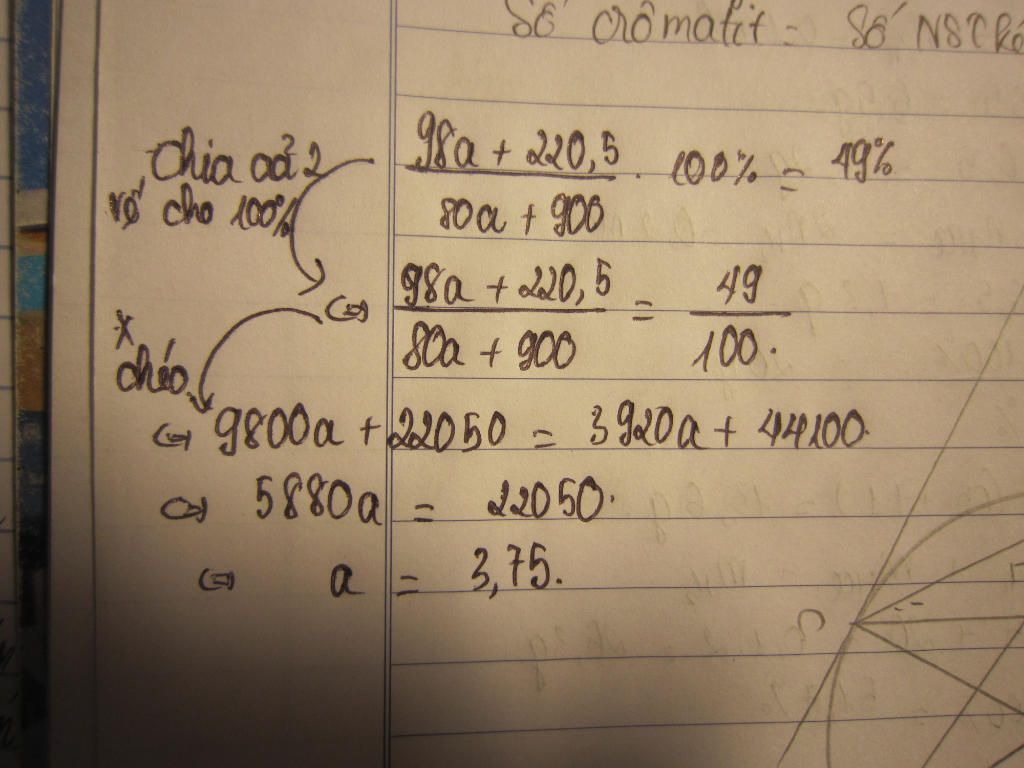 Số crômatit = Số NST ké
Chia cả 2 vế cho 100%
(98a + 220,5)/(80a + 900) . 100% = 49%
⇔ (98a + 220,5)/(80a + 900) = 49/100.
* chéo
⇔ 9800a + 22050 = 3920a + 44100.
⇔ 5880a = 22050.
⇔ a = 3,75.